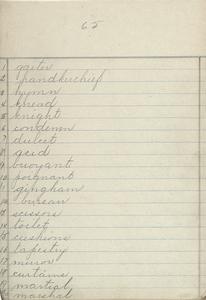 65
1 gaiter
2 handkerchief
3 hymn
4 knead
5 knight
6 condemn
7 dulcet
8 acid
9 buoyant
10 poignant
11 gingham
12 bureau
13 scissors
14 toilet
15 cushions
16 tapestry
17 mirror
18 curtains
19 martial
marshal